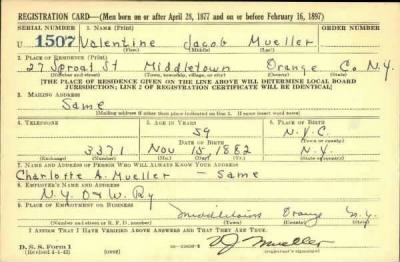 REGISTRATION CARD—(Men born on or after April 28, 1877 and on or before February 16, 1897)
SERIAL NUMBER 1. NAME (Print)
U 1507 Valentine Jacob Mueller
(First) (Middle) (Last)
2. PLACE OF RESIDENCE (Print)
27 Sproat St Middletown Orange Co N.Y.
(Number and street) (Town, township, village, or city) (County) (State)
[THE PLACE OF RESIDENCE GIVEN ON THE LINE ABOVE WILL DETERMINE LOCAL BOARD
JURISDICTION; LINE 2 OF REGISTRATION CERTIFICATE WILL BE IDENTICAL]
3. MAILING ADDRESS
Same
[Mailing address if other than place indicated on line 2. If same insert word same]
4. TELEPHONE 5. AGE IN YEARS 6. PLACE OF BIRTH
59 N.Y.C.
DATE OF BIRTH (Town or county)
3371 Nov 15, 1882 N.Y.
(Exchange) (Number) (Mo.) (Day) (Yr.) (State or country)
7. NAME AND ADDRESS OF PERSON WHO WILL ALWAYS KNOW YOUR ADDRESS
Charlotte A. Mueller — Same
8. EMPLOYER'S NAME AND ADDRESS
N.Y. O & W. Ry
9. PLACE OF EMPLOYMENT OR BUSINESS
Middletown Orange N.Y.
(Number and street or R. F. D. number) (Town) (County) (State)
I AFFIRM THAT I HAVE VERIFIED ABOVE ANSWERS AND THAT THEY ARE TRUE.
D. S. S. Form 1
(Revised 4-1-42) (over)
VJ Mueller
(Registrant's signature)